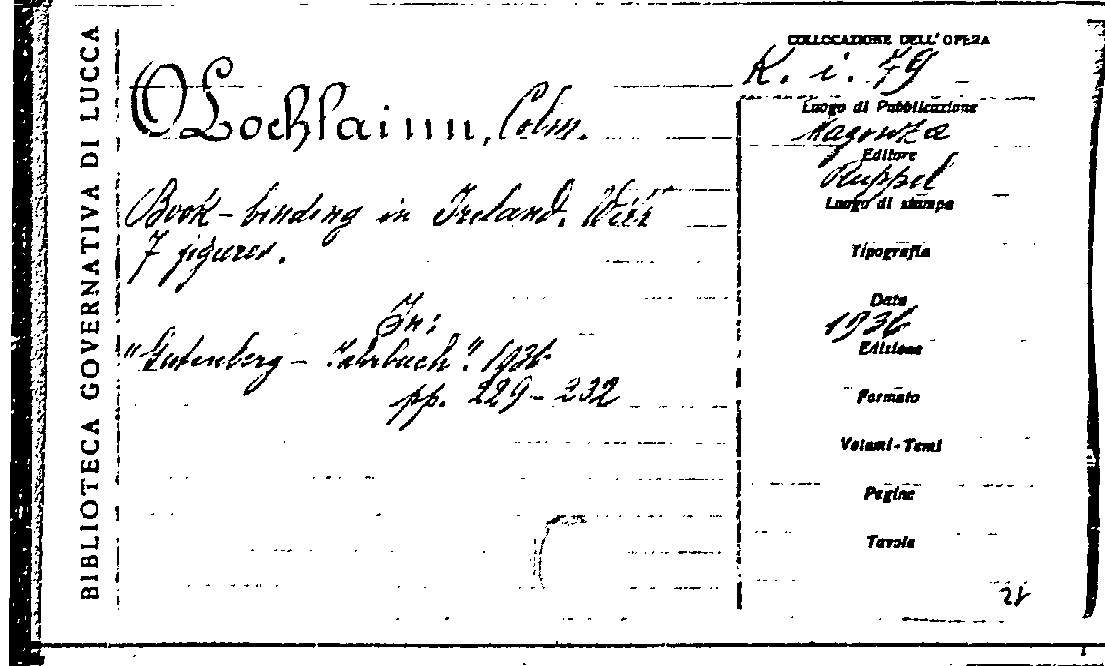 BIBLIOTECA GOVERNATIVA DI LUCCA
O Lochlainn, Colm.
Book-binding in Ireland. With
7 figures.
In:
"Gutenberg-Jahrbuch". 1936
pp. 229-232
COLLOCAZIONE DELL'OPERA
K. i. 79
Luogo di Pubblicazione
Magonza
Editore
Ruppel
Luogo di stampa
Tipografia
Data
1936
Edizione
Formato
Volumi-Tomi
Pagine
Tavole